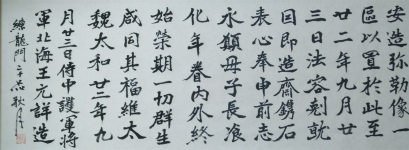 安造弥勒像一
區以置於此至
廿二年九月廿
三日法容剋就
因即造齋鐫石
表心奉申前志
永願母子長飡
化年眷內外終
始榮期一切群生
咸同其福維太
魏太和廿二年九
月廿三日侍中護軍將
軍北海王元詳造
練龍門二十品 秋月